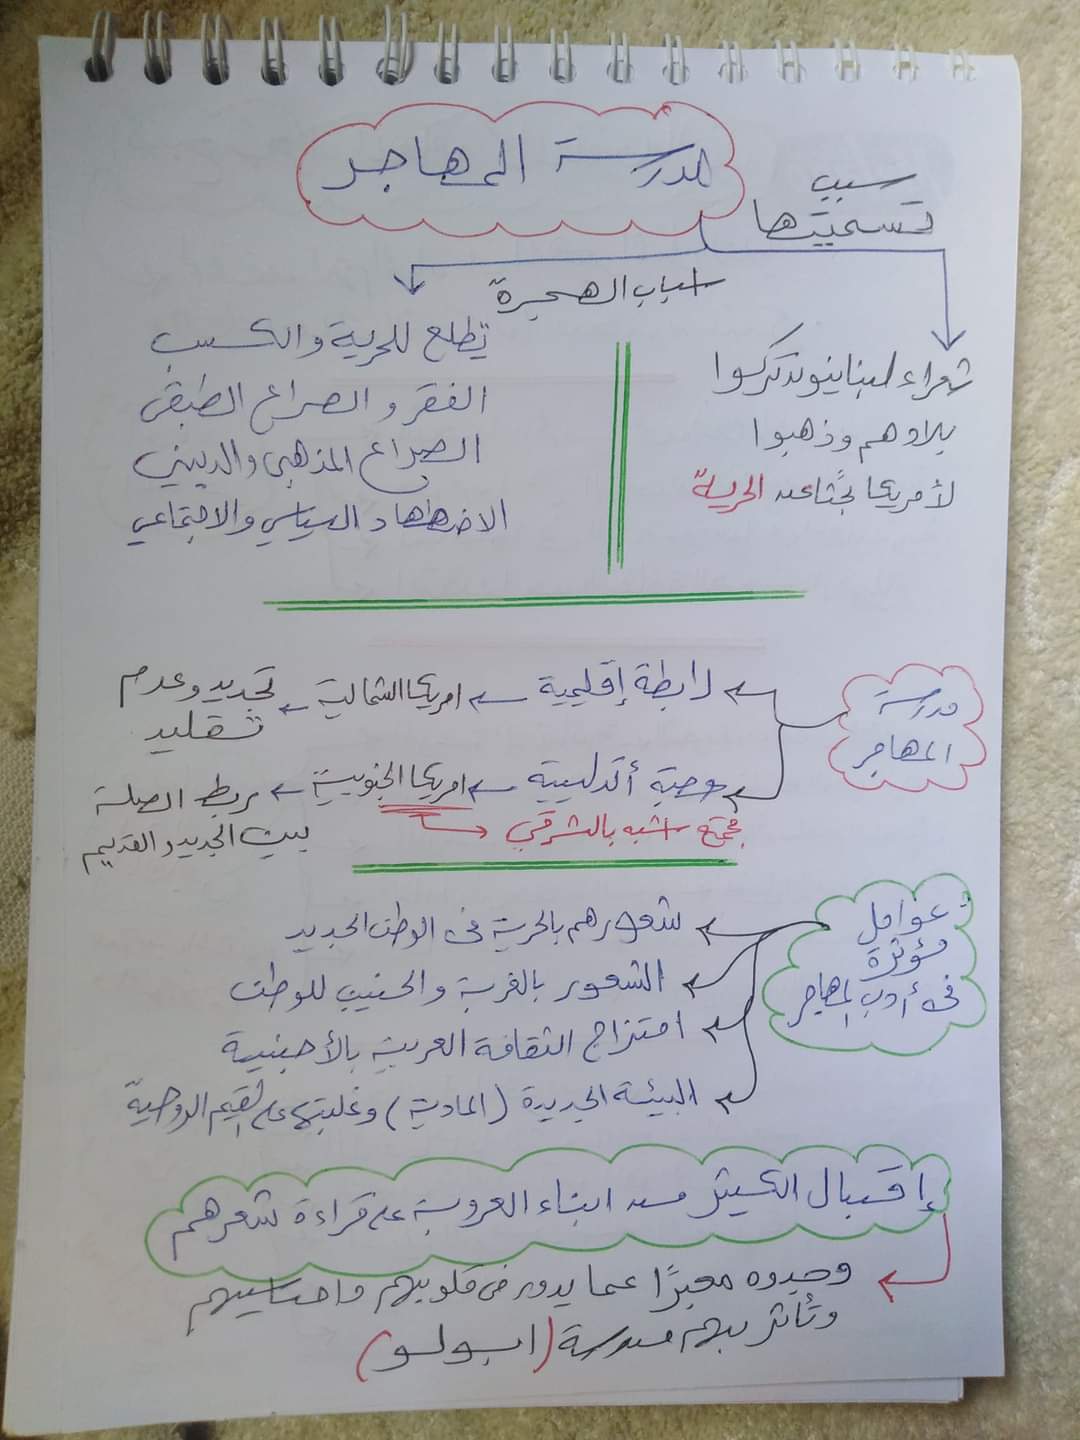 مدرسة المهاجر
سبب
تسميتها
شعراء لبنانيون تركوا
بلادهم وذهبوا
لأمريكا بحثا عن الحرية
اسباب الهجرة
تطلع للحرية والكسب
الفقر و الصراع الطبقى
الصراع المذهبى والدينى
الاضطهاد السياسي والاجتماعي
مدرسة
المهاجر
رابطة إقليمية ← امريكا الشمالية ← تجديد وعدم
تقليد
أندلسية ← امريكا الجنوبية ← ربط الصلة
بين الجديد و القديم
مجتمع اشبه بالشرقي
عوامل
مؤثرة
فى أدب المهاجر
شعورهم بالحرية فى الوطن الجديد
الشعور بالغربة والحنين للوطن
امتزاج الثقافة العربية بالأجنبية
البيئة الجديدة (المادية) وغلبتها على القيم الروحية
إقبال الكثير من ابناء العروبة على قراءة شعرهم
وجدوه معبرًا عما يدور فى قلوبهم واحاسيسهم
وتأثر بهم مدرسة (ابولو)